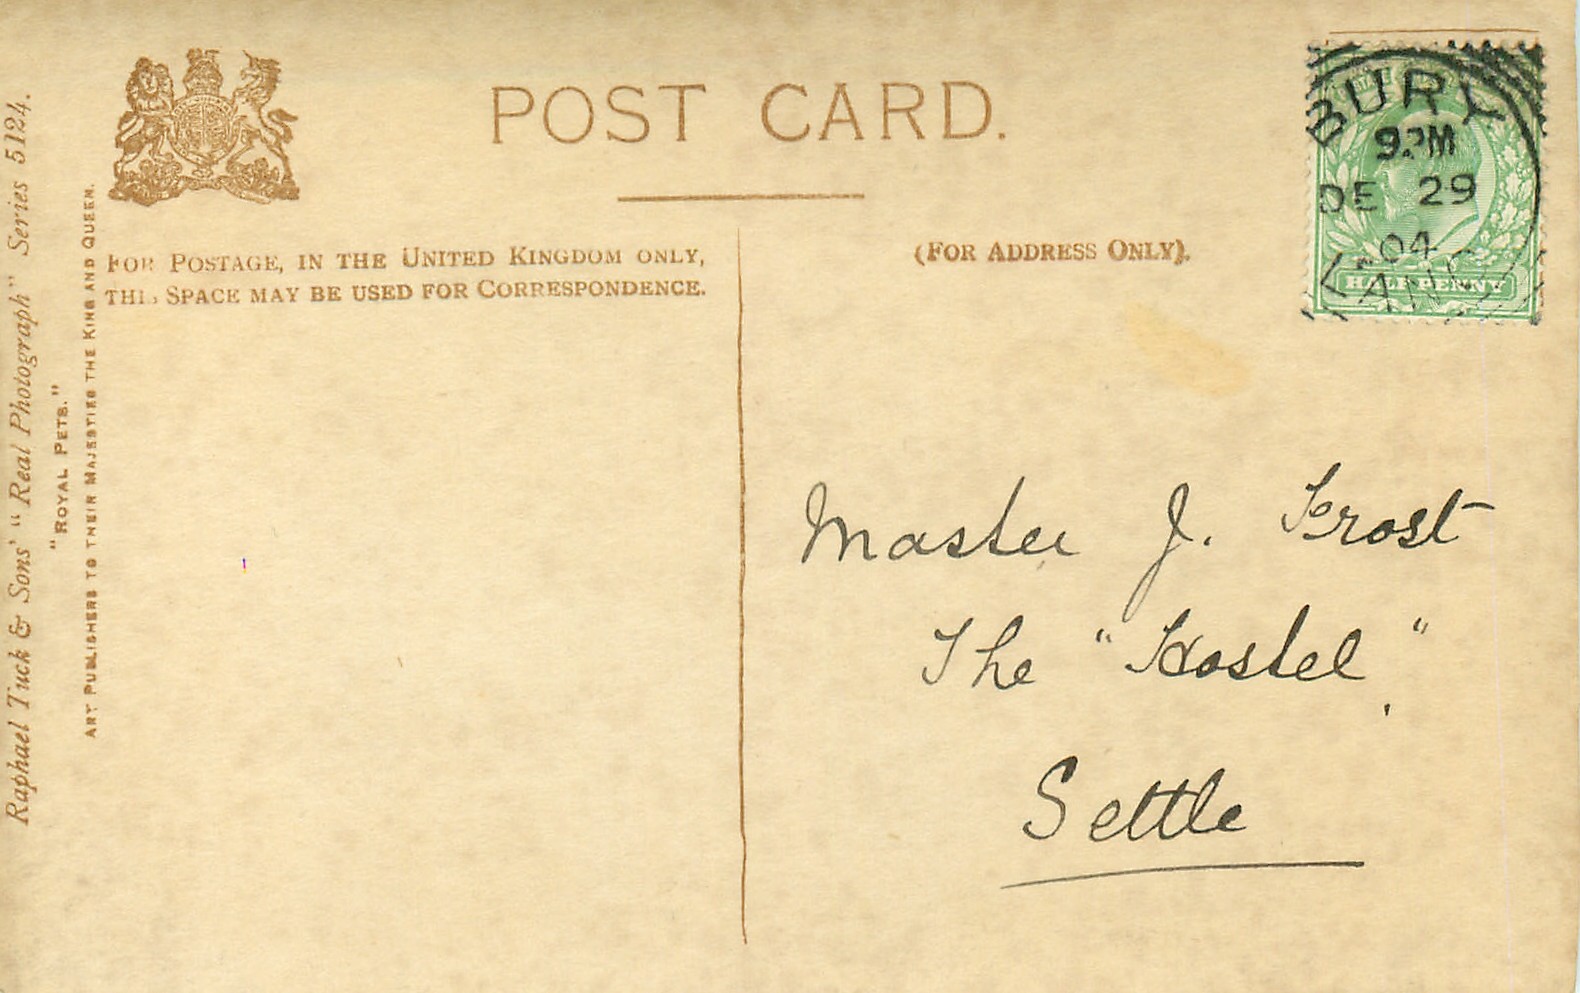 POST CARD.
FOR POSTAGE, IN THE UNITED KINGDOM ONLY,
THIS SPACE MAY BE USED FOR CORRESPONDENCE.
(FOR ADDRESS ONLY).
Raphael Tuck & Sons' "Real Photograph" Series 5124.
"ROYAL PETS."
ART PUBLISHERS TO THEIR MAJESTIES THE KING AND QUEEN.
BURY
9 PM
DE 29
04
LANC
HALFPENNY
Master J. Frost
The "Hostel",
Settle